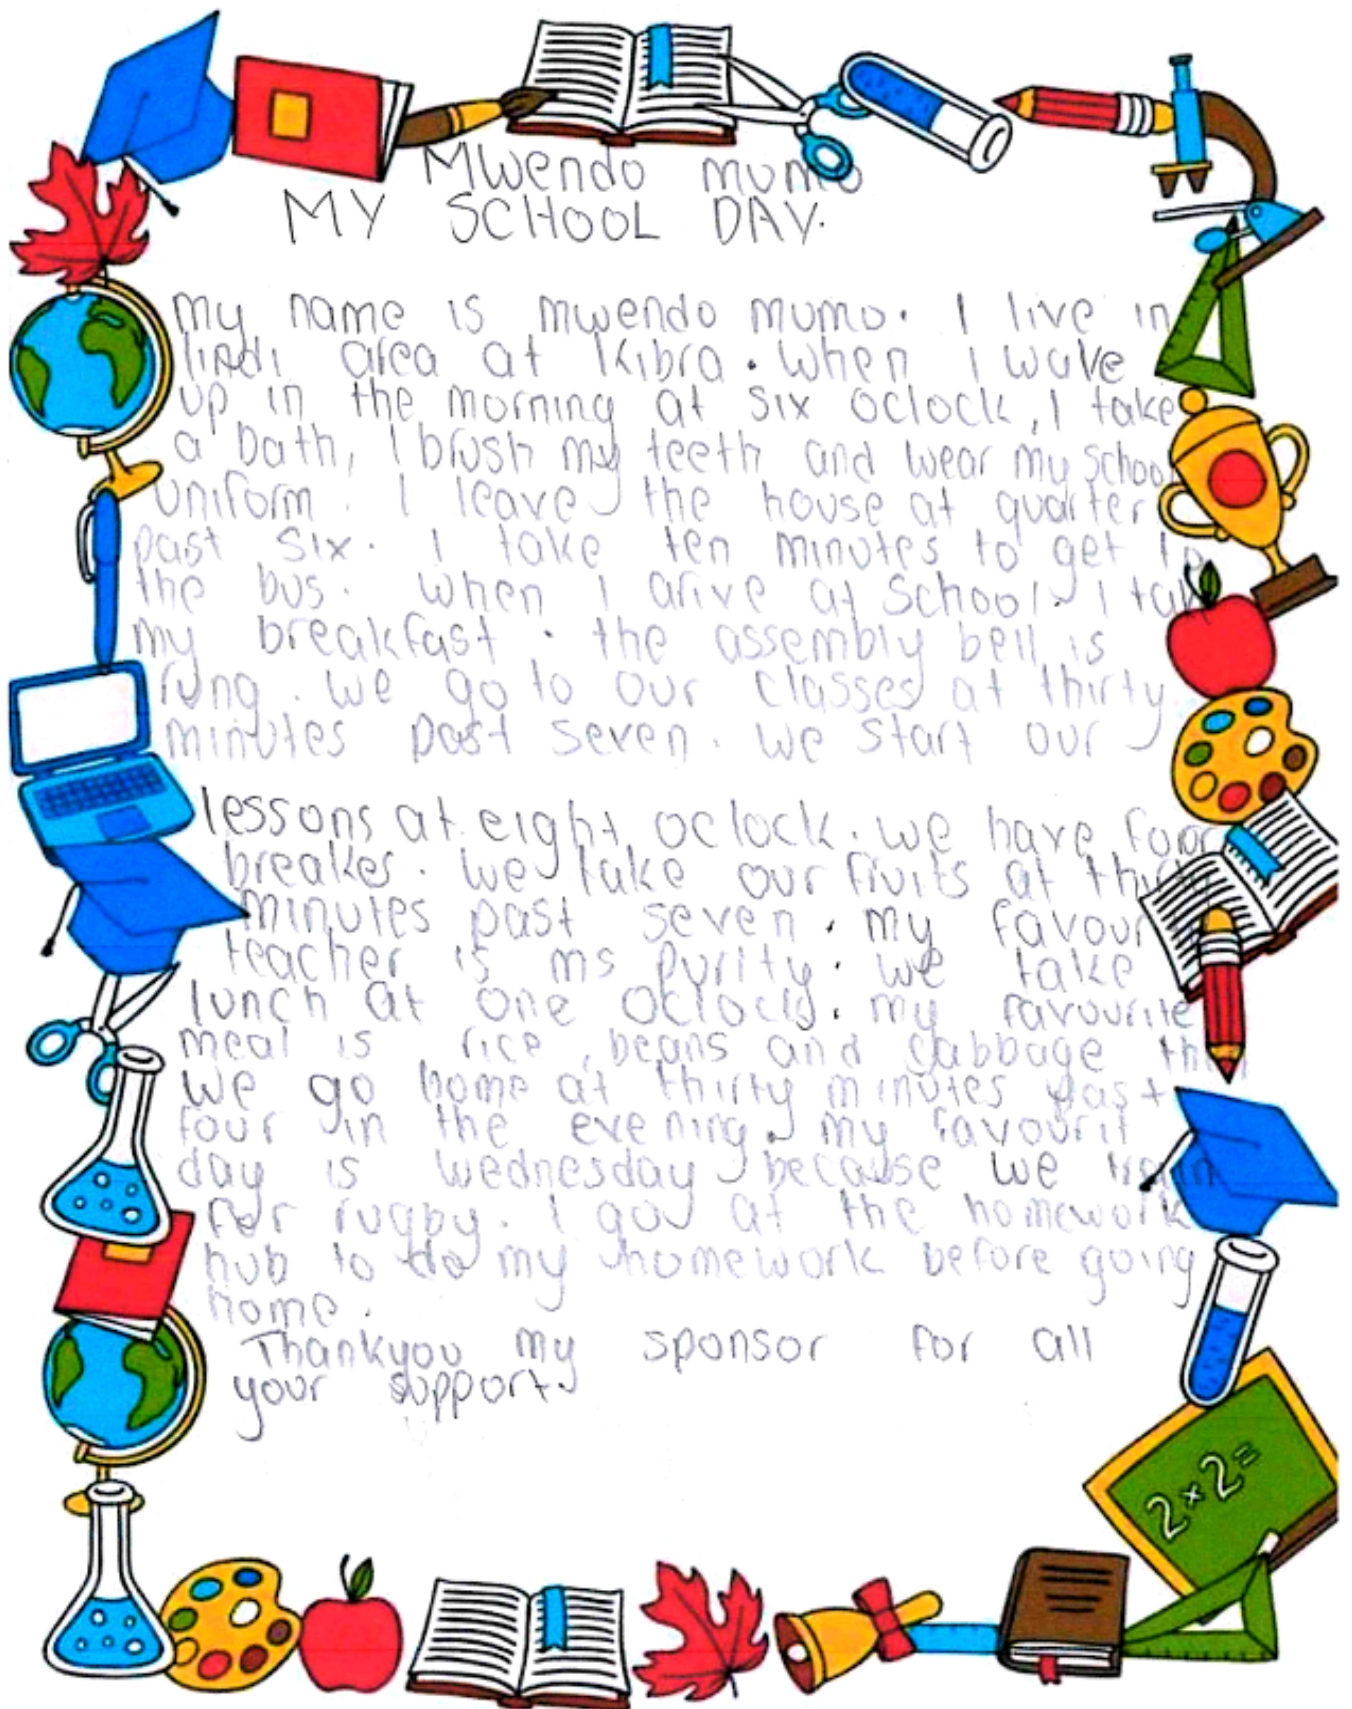 Mwendo mumo
MY SCHOOL DAY.
my name is mwendo mumo. I live in
lindi area at Kibra. When I wake
up in the morning at six oclock, I take
a bath, I brush my teeth and wear my school
uniform. I leave the house at quarter
past six. I take ten minutes to get to
the bus. When I arive at school. I take
my breakfast. the assembly bell is
rung. We go to our classes at thirty
minutes past seven. We start our
lessons at eight oclock. We have four
breakes. We take our fruits at thirty
minutes past seven. my favour
teacher is ms purity. We take
lunch at one oclock. my favourite
meal is rice, beans and cabbage then
we go home at thirty minutes past
four in the evening. my favourit
day is Wednesday because we train
for rugby. I go at the homework
hub to do my homework before going
home.
Thankyou my sponsor for all
your support.
2 x 2 =